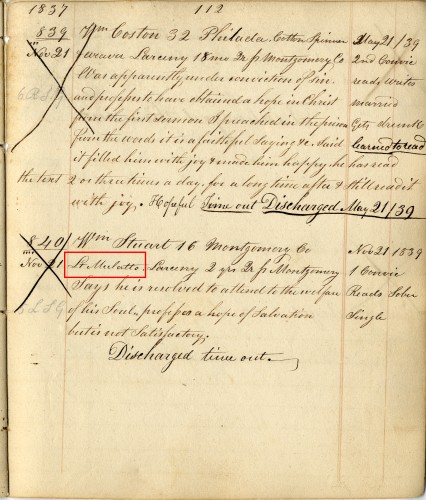 1837 112
839 Wm Coston 32 Philada. Cotton Spinner May 21/39
Nov 21 & weaver Larceny 18 mos Er p Montgomery Co 2nd Convic
Was apparently under conviction of sin read, writes
and professes to have obtained a hope in Christ married
from the first sermon I preached in the prison Gets drunk
from the words it is a faithful Saying &c. Said learned to read
it filled him with joy & made him happy. he has read
the text 2 or three times a day. for a long time after & still read it
with joy. Hopeful Time out Discharged May 21/39
840 Wm Stuart 16 Montgomery Co Nov 21 1839
Nov 21 Lt Mulatto. Larceny 2 yrs Er p Montgomery 1 Convic
Says he is resolved to attend to the welfare Reads Sober
of his Soul professes a hope of Salvation Single
but is not Satisfactory.
Discharged time out.